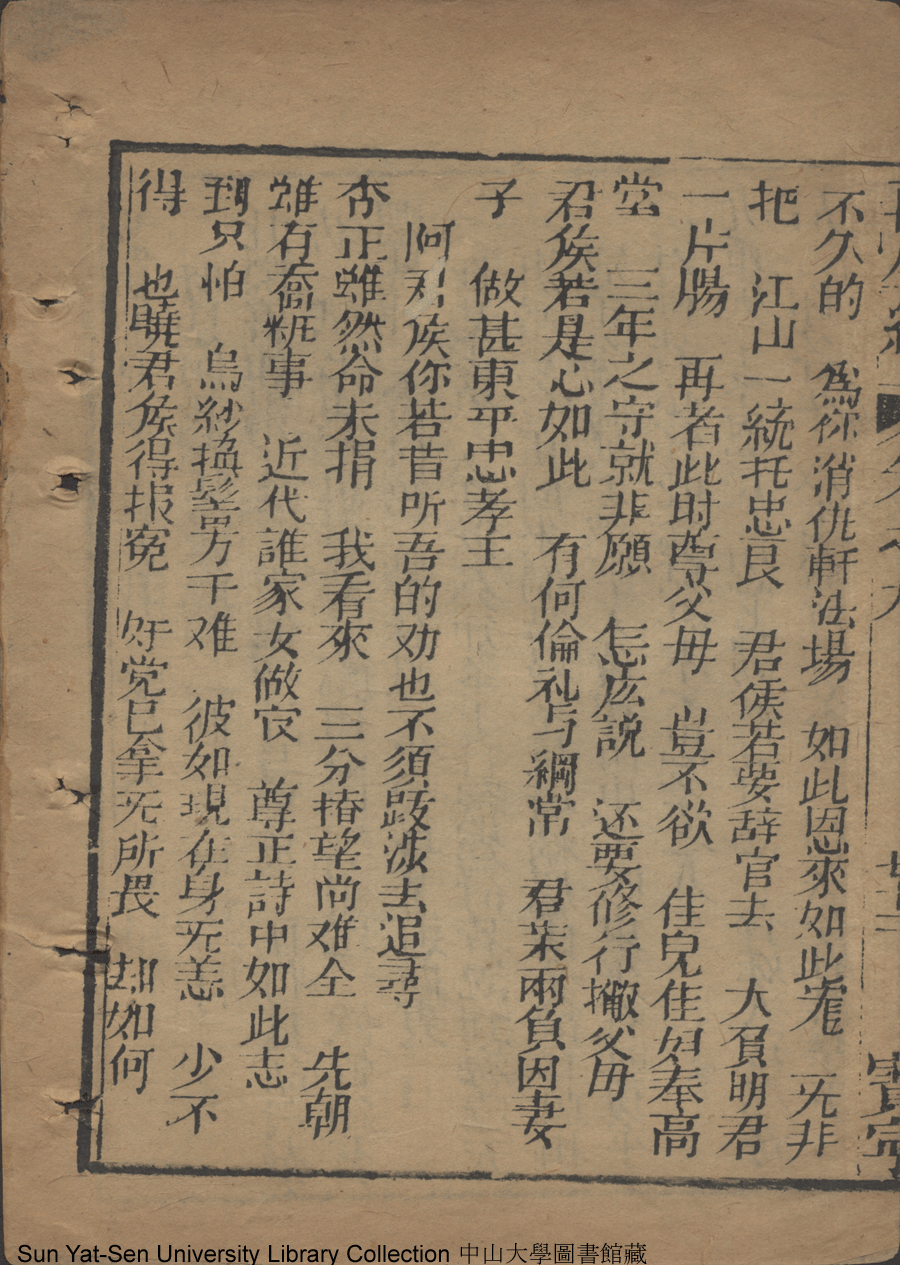 不久的　為你消仇軒法場　如此恩來如此寵　无非
把　江山一統托忠良　君侯若要辞官去　大負明君
一片腸　再者此时尊父毋　豈不欲　佳兒佳妇奉高
堂　三年之守就非願　怎庅説　还要修行撇父毋
君侯若是心如此　有何倫礼与綱常　君亲兩負因妻
子　做甚東平忠孝王
阿君侯你若昔听吾的劝也不須跋涉去追尋
杏正雖然命未捐　我看來　三分指望尚难全　先朝
雖有喬粧事　近代誰家女做官　尊正詩中如此志
到只怕　烏紗換髻万千难　彼如現在身无恙　少不
得　也曉君侯得报冤　奸党已拿无所畏　却如何
Sun Yat-Sen University Library Collection 中山大學圖書館藏